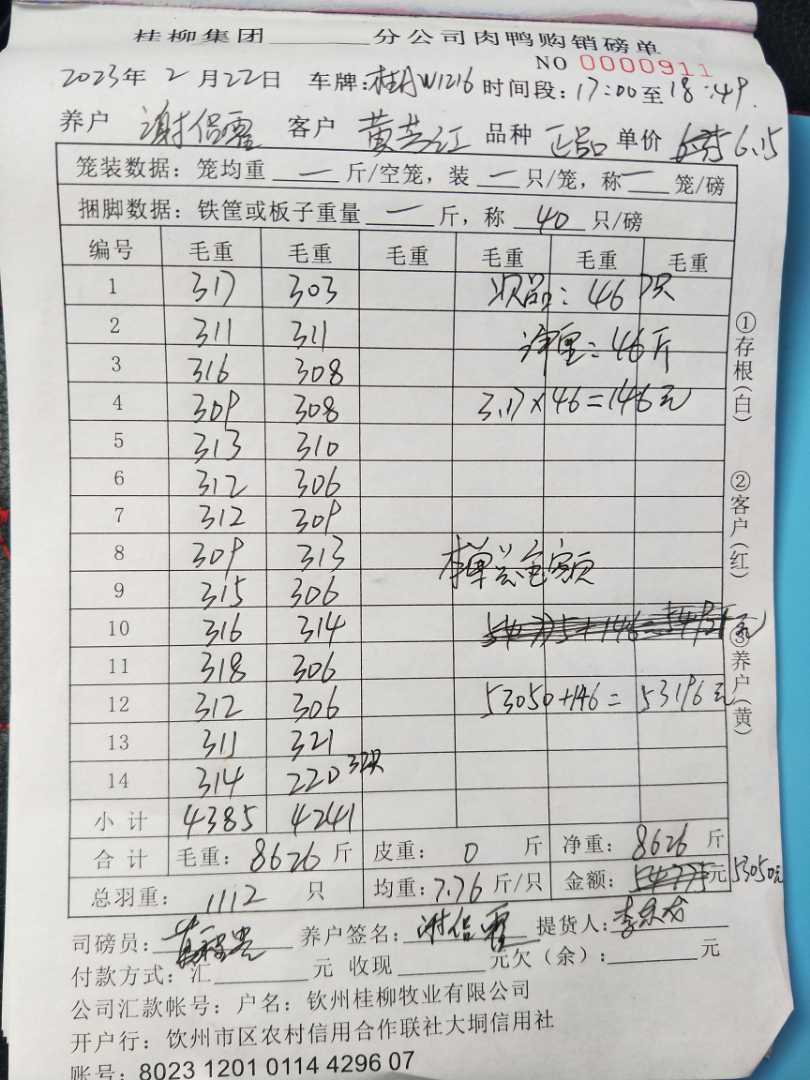 桂柳集团 分公司肉鸭购销磅单
NO 0000911
2023年 2月22日 车牌:桂AW1216 时间段:17:00至18:49.
养户 谢侣霍 客户 黄芝江 品种 正品 单价 6.15
笼装数据:笼均重 一 斤/空笼,装 一 只/笼,称 一 笼/磅
捆脚数据:铁筐或板子重量 一 斤,称 40 只/磅
编号 毛重 毛重 毛重 毛重 毛重 毛重
1 317 303 次品:46只
2 311 311 净重:46斤
3 316 308
4 309 308 3.17×46=146元
5 313 310
6 312 306
7 312 309
8 309 313 本单总金额
9 315 306
10 316 314
11 318 306
12 312 306 53050+146=53196元
13 311 321
14 314 220 32只
小计 4385 4241
合计 毛重:8626斤 皮重:0斤 净重:8626斤
总羽重:1112只 均重:7.76斤/只 金额:元 53050元
司磅员: 养户签名:谢侣霍 提货人:
付款方式:汇 元 收现 元欠(余): 元
公司汇款帐号:户名:钦州桂柳牧业有限公司
开户行:钦州市区农村信用合作联社大垌信用社
账号:8023 1201 0114 4296 07
①存根(白) ②客户(红) ③养户(黄)